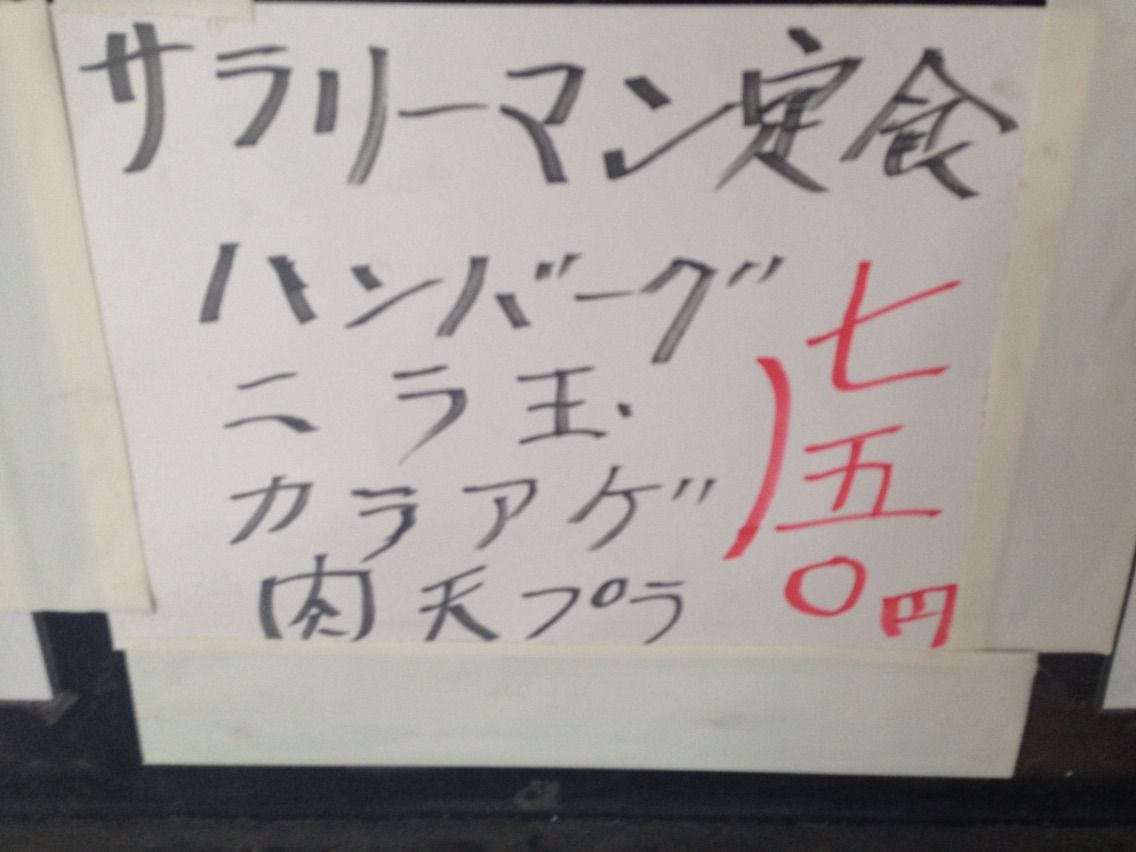 サラリーマン定食
ハンバーグ
ニラ玉
カラアゲ
肉天プラ
七五〇円